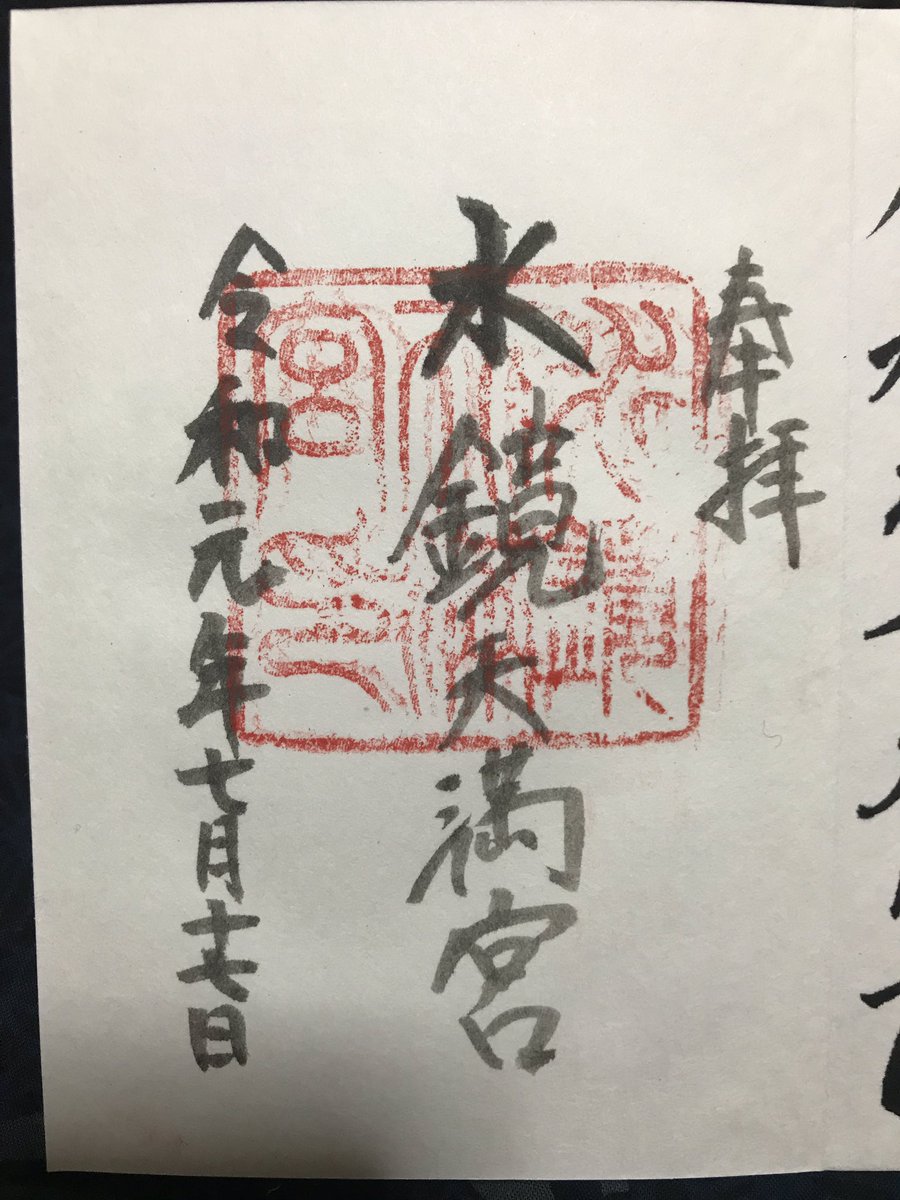 奉拝
水鏡天満宮
令和元年七月十七日